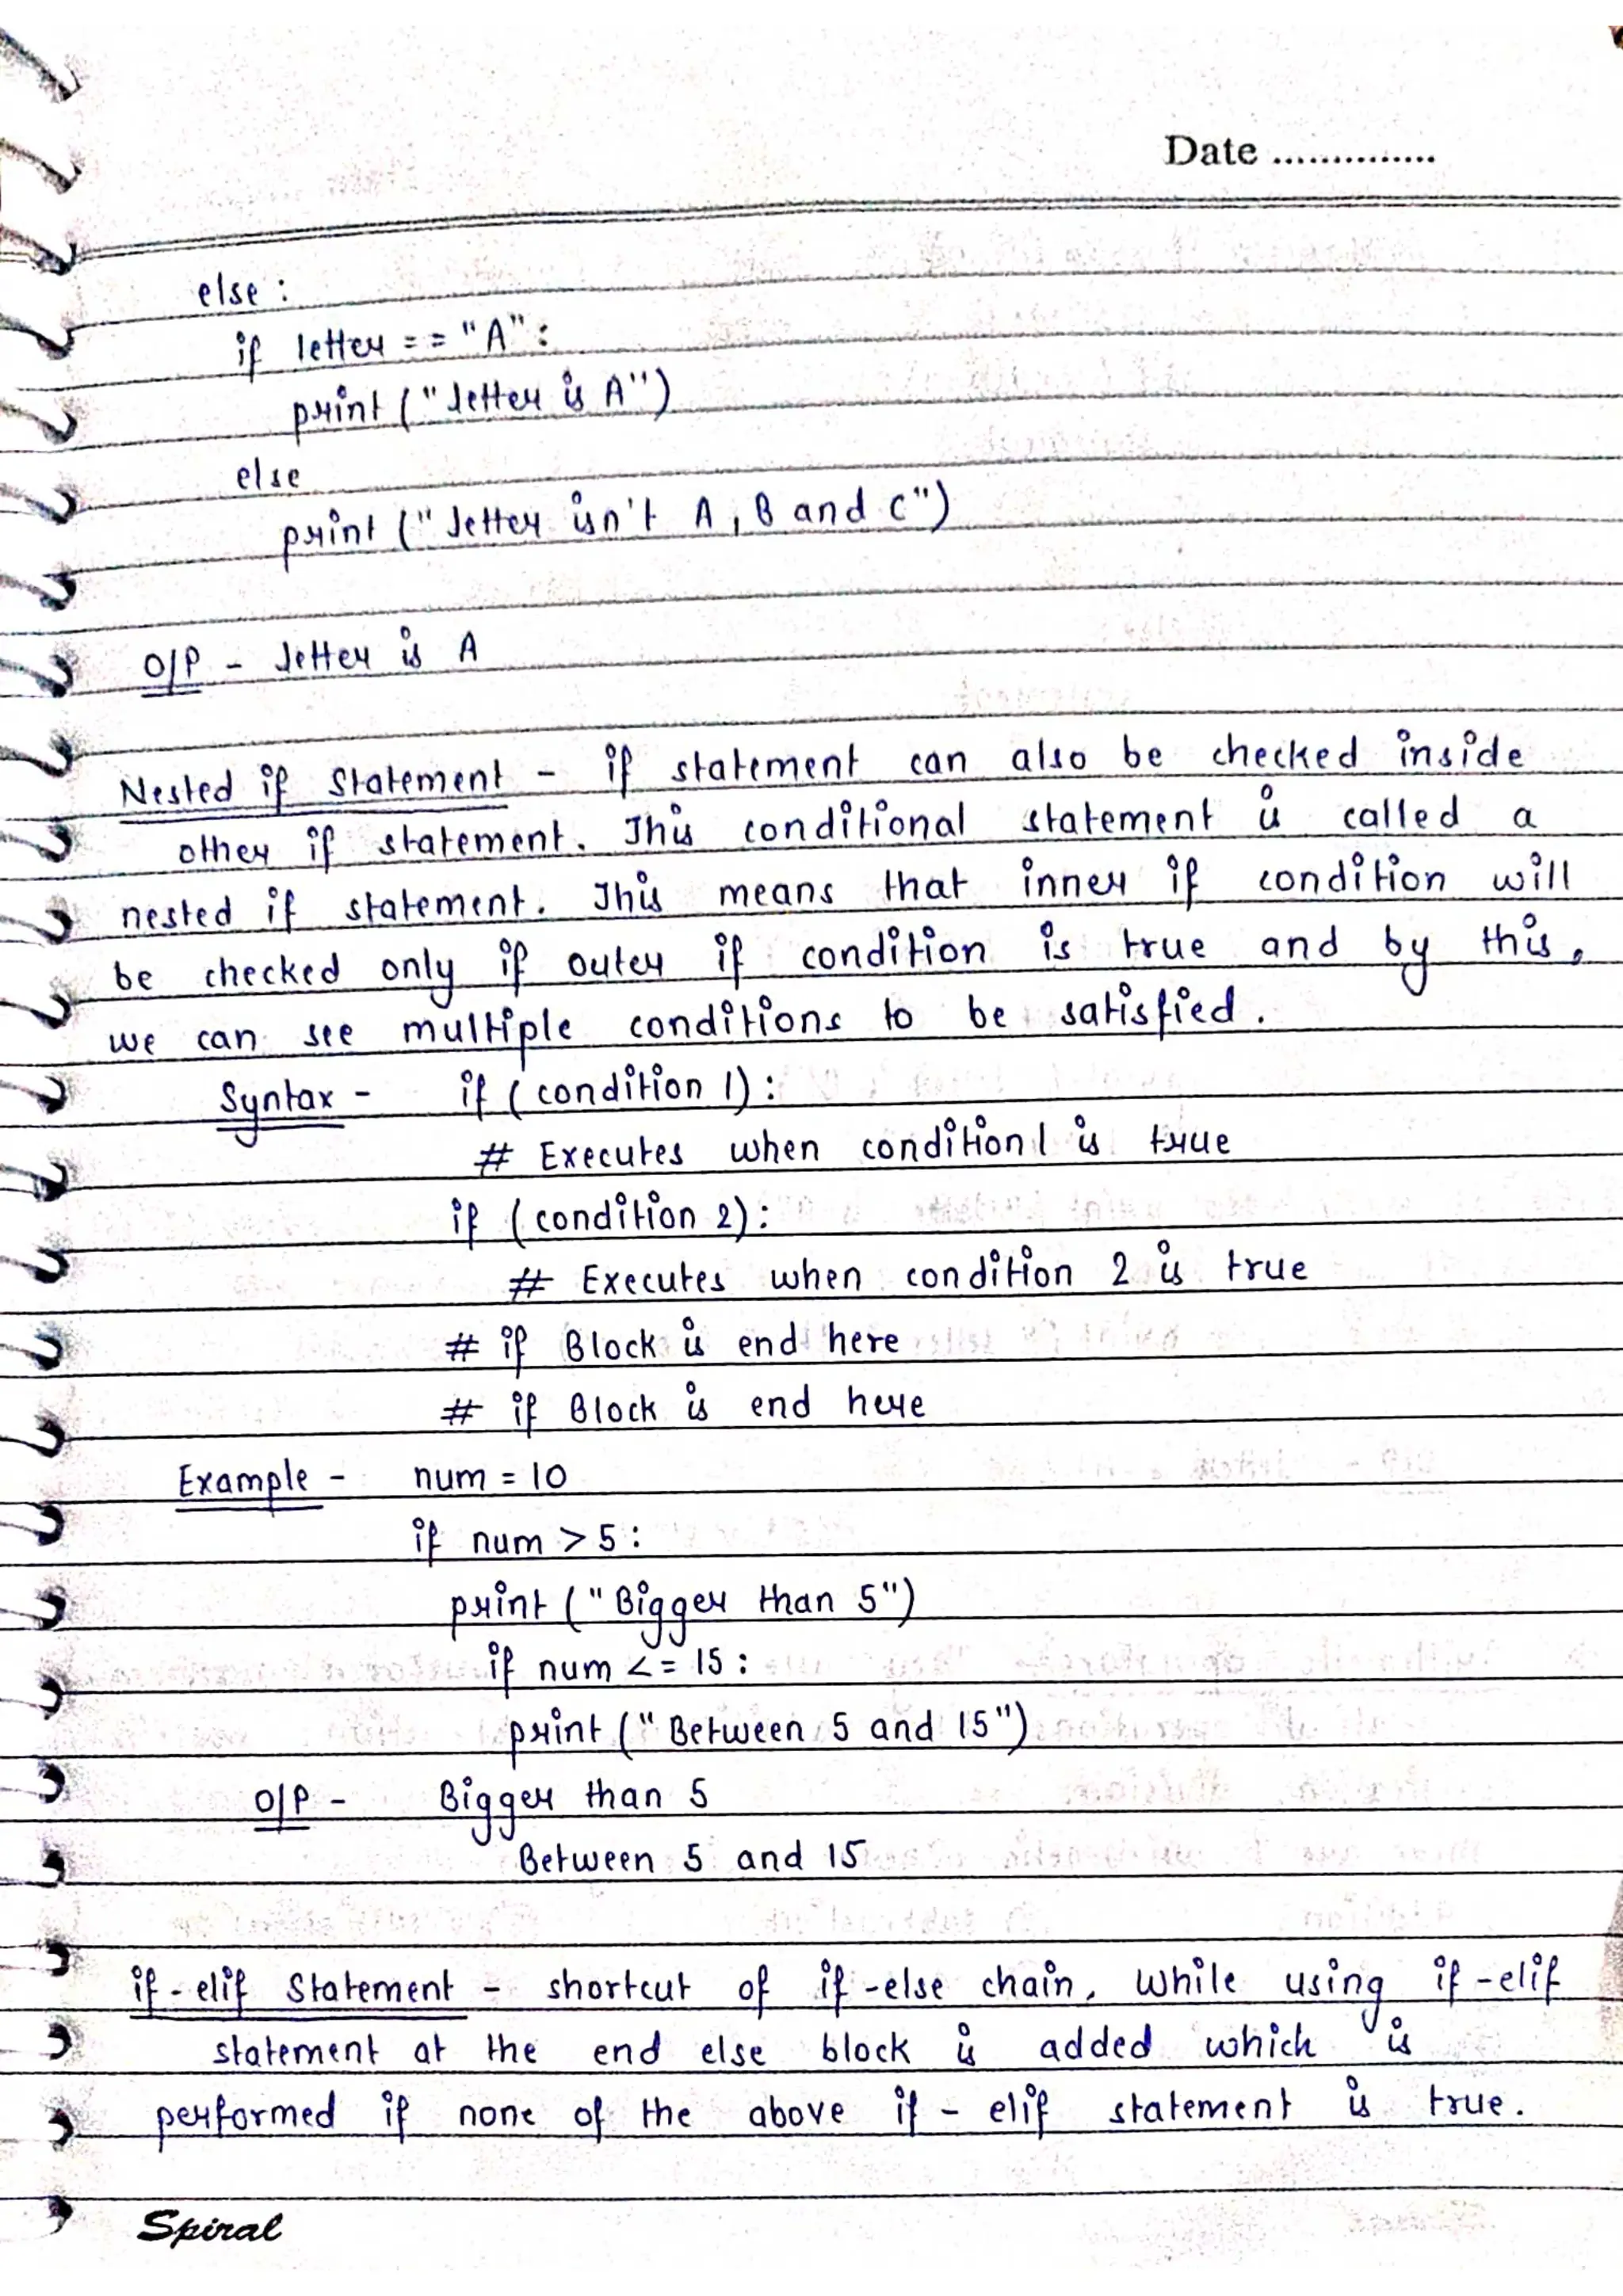 Date ...............
else :
if letter == "A" :
print ("letter is A")
else
print ("letter isn't A, B and C")
O/P - letter is A
Nested if Statement - if statement can also be checked inside
other if statement. This conditional statement is called a
nested if statement. This means that inner if condition will
be checked only if outer if condition is true and by this,
we can see multiple conditions to be satisfied.
Syntax - if (condition 1) :
# Executes when condition 1 is true
if (condition 2) :
# Executes when condition 2 is true
# if Block is end here
# if Block is end here
Example - num = 10
if num > 5 :
print ("Bigger than 5")
if num <= 15 :
print ("Between 5 and 15")
O/P - Bigger than 5
Between 5 and 15
if-elif Statement - shortcut of if-else chain, while using if-elif
statement at the end else block is added which is
performed if none of the above if - elif statement is true.
Spiral